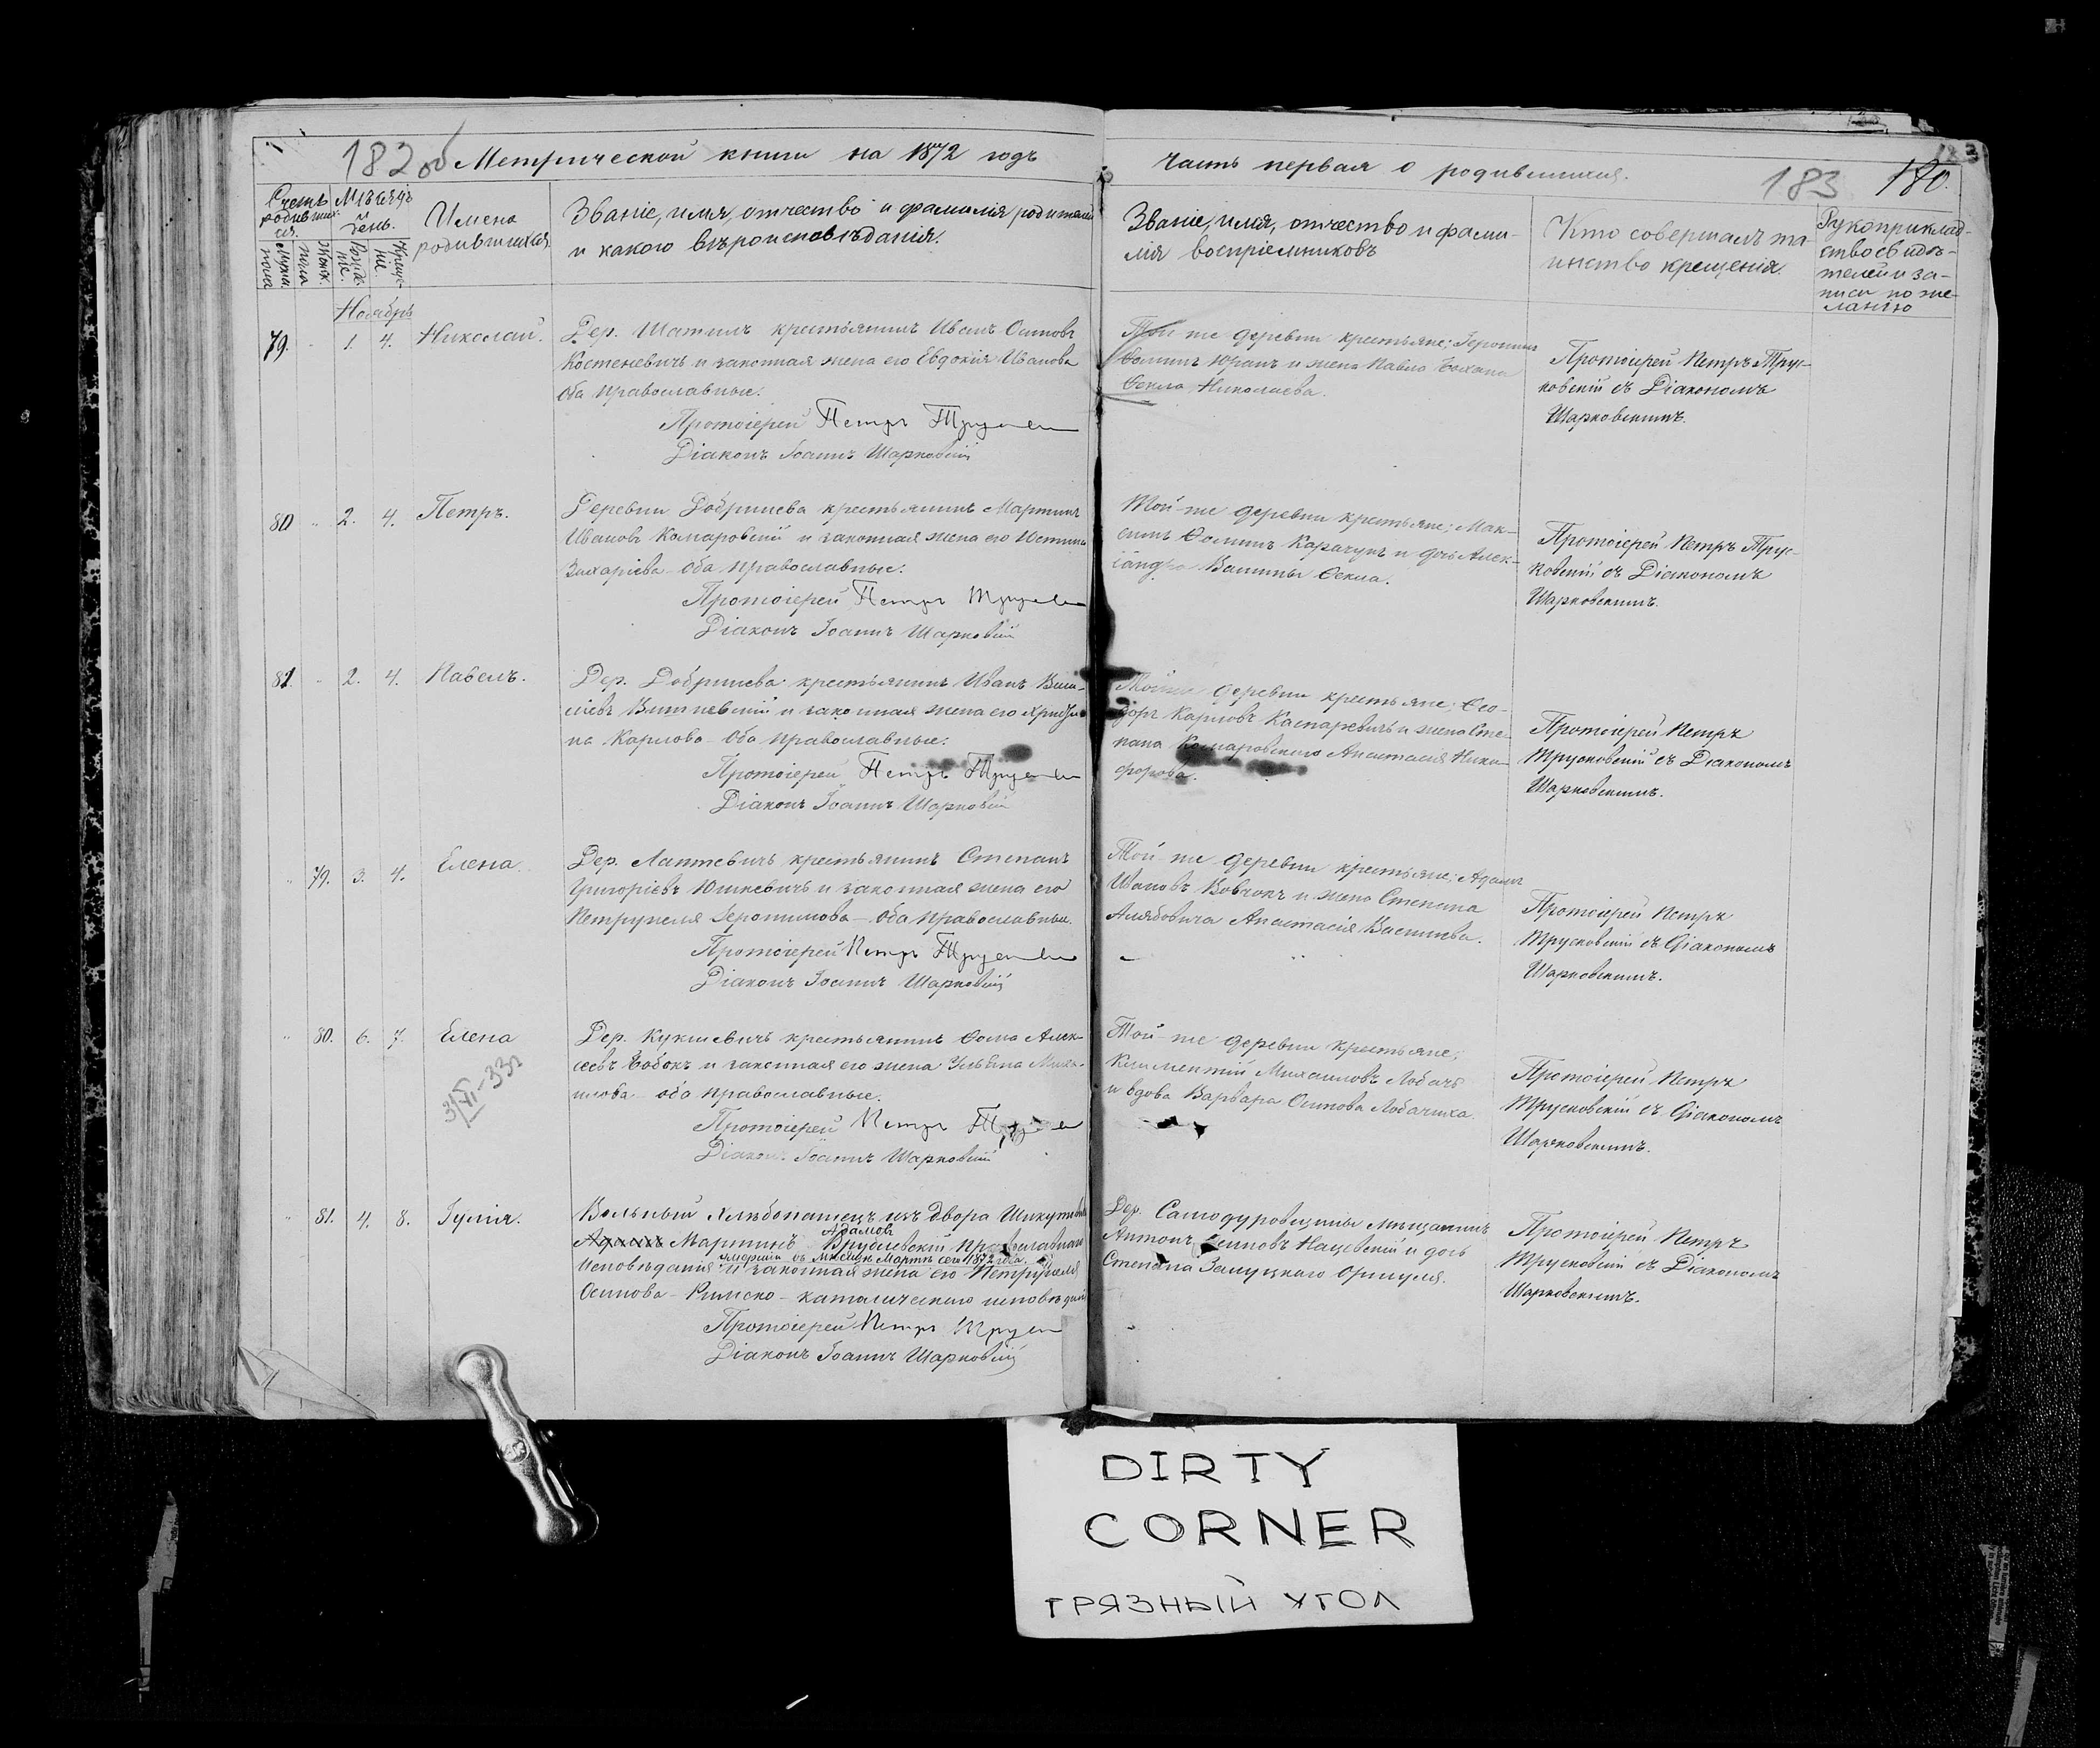 182 об Метрической книги на 1872 годъ
часть первая о родившихся.
183 180.
Счетъ родившихся.
Мѣсяцъ и день.
Имена родившихся
Званіе, имя, отчество и фамилія родителей
и какого вѣроисповѣданія.
Званіе, имя, отчество и фами-
лія воспріемниковъ
Кто совершалъ та-
инство крещенія.
Рукоприклад-
ство свидѣ-
телей и за-
писи по же-
ланію
Мужск. пола
Женск. пола
Рожде-
ніе.
Креще-
ніе.
Ноябрь
79. 1. 4. Николай.
Дер. крестьянинъ Иванъ Осиповъ
Костеневичъ и законная жена его Евдокія Иванова
Оба православные.
Протоіерей Петръ
Діаконъ Іоаннъ Шарковскій
Той же деревни крестьяне; Іеронимъ
Ѳоминъ и жена Павла
Ѳекла Николаева.
Протоіерей Петръ Трус-
ковскій съ Діакономъ
Шарковскимъ.
80 2. 4. Петръ.
Деревни крестьянинъ Мартинъ
Ивановъ Комаровскій и законная жена его Юстина
Захаріева оба православные.
Протоіерей Петръ
Діаконъ Іоаннъ Шарковскій
Той-же деревни крестьяне; Мак-
симъ Ѳоминъ Карачунъ и дочь Алек-
Ѳекла.
Протоіерей Петръ Трус-
ковскій съ Діакономъ
Шарковскимъ.
81. 2. 4. Павелъ.
Дер. крестьянинъ Иванъ Васи-
ліевъ и законная жена его
на Карлова Оба православные.
Протоіерей Петръ
Діаконъ Іоаннъ Шарковскій
деревни крестьяне; Ѳео-
доръ Карповъ и жена Сте-
пана Комаровскаго Анастасія Ники-
форова.
Протоіерей Петръ
Трусковскій съ Діакономъ
Шарковскимъ.
79. 3. 4. Елена
Дер. Лаптевичъ крестьянинъ Степанъ
Григоріевъ Юшкевичъ и законная жена его
Петрунеля Іеронимова - Оба православные.
Протоіерей Петръ
Діаконъ Іоаннъ Шарковскій
Той же деревни крестьяне; Адамъ
и жена Степана
Анастасія
Протоіерей Петръ
Трусковскій съ Діакономъ
Шарковскимъ.
80. 6. 7. Елена
3/XI-33г
Дер. Кукшевичъ крестьянинъ Ѳома Алек-
сѣевъ Бобокъ и законная его жена Ульяна Миха-
илова оба православные.
Протоіерей Петръ
Діаконъ Іоаннъ Шарковскій
Той же деревни крестьяне;
Климентій Михаиловъ Лобачъ
и вдова Варвара Осипова Лобачиха
Протоіерей Петръ
Трусковскій съ Діакономъ
Шарковскимъ.
81. 4. 8. Іулія.
Вольный хлѣбопашецъ изъ двора
Адамовъ
Мартинъ Врублевскій православнаго
умершій въ мѣсяцѣ Мартѣ сего 1872 года.
Исповѣданія и законная жена его Петрунеля
Осипова - Римско-католическаго исповѣданія
Протоіерей Петръ
Діаконъ Іоаннъ Шарковскій
Дер. Самодуровщины мѣщанинъ
Антонъ и дочь
Степана
Протоіерей Петръ
Трусковскій съ Діакономъ
Шарковскимъ.
DIRTY
CORNER
ГРЯЗНЫЙ УГОЛ